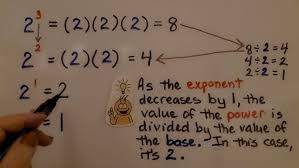 2³ = (2)(2)(2) = 8
2² = (2)(2) = 4
8 ÷ 2 = 4
4 ÷ 2 = 2
2 ÷ 2 = 1
2¹ = 2
= 1
As the exponent
decreases by 1, the
value of the power is
divided by the value of
the base. In this case,
it's 2.